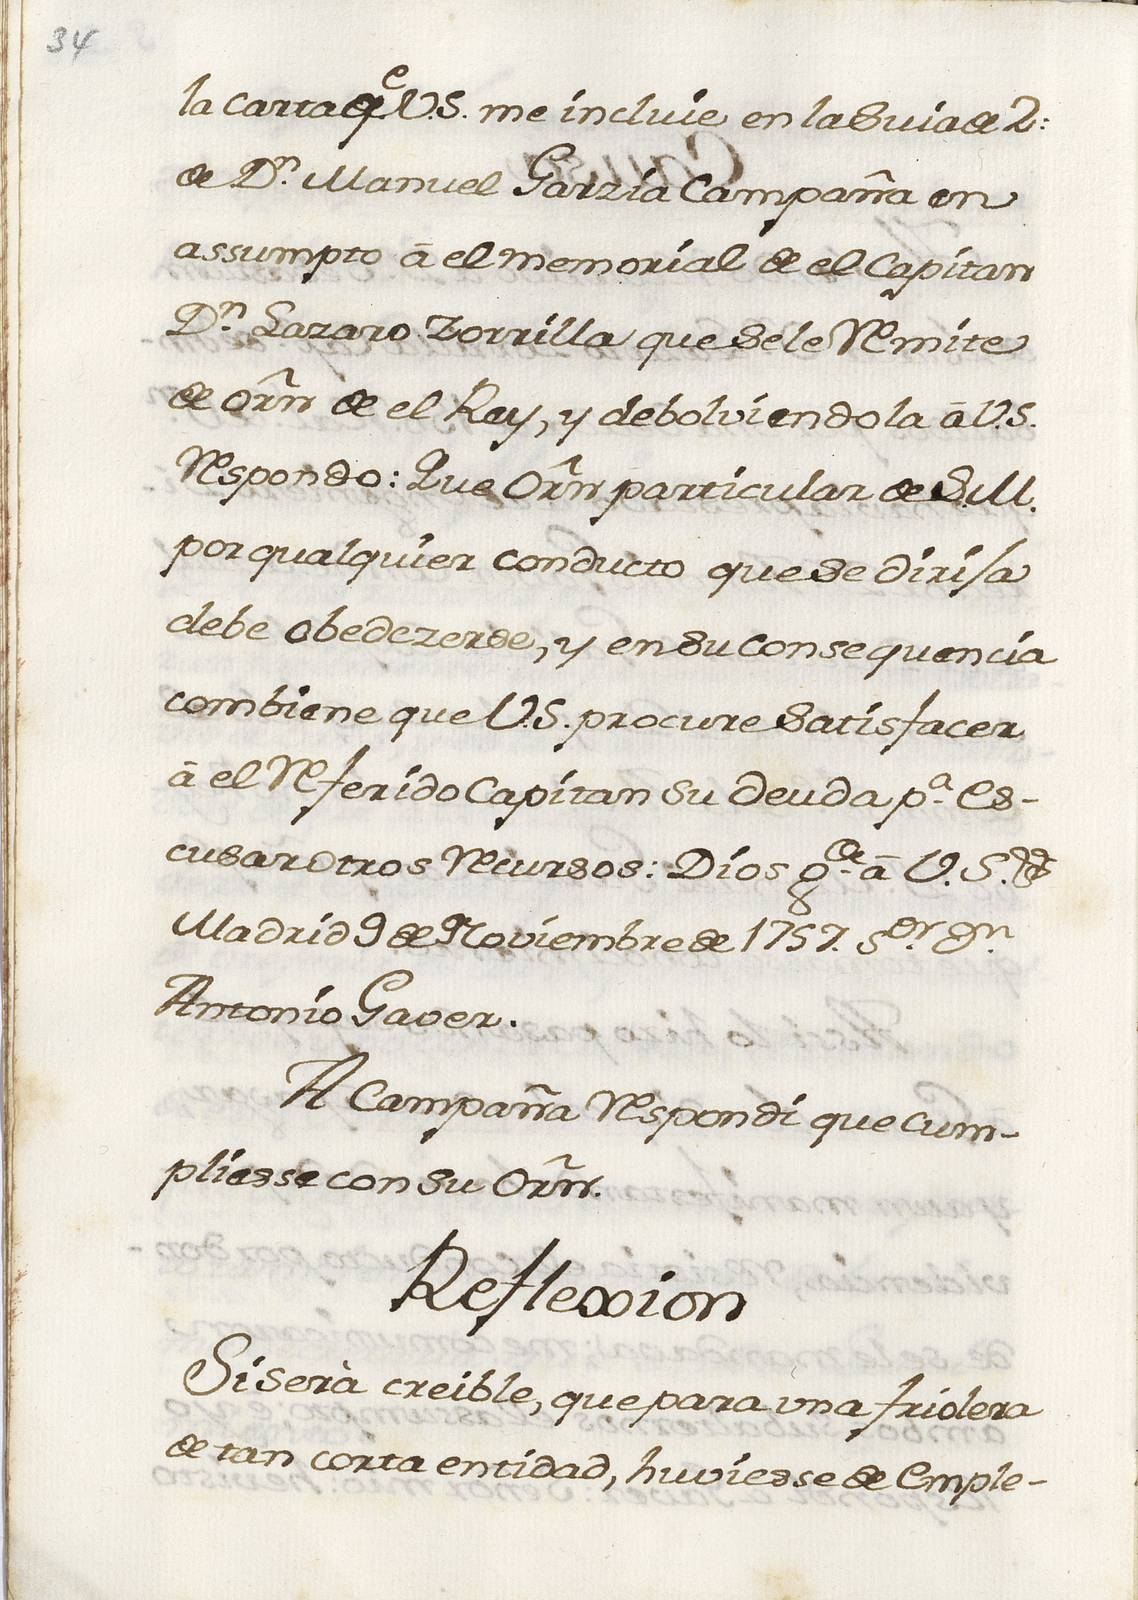 34
la carta qᵉ V.S. me incluie en la Suia de 2:
de Dⁿ. Manuel Garzia Campaña en
assumpto ā el memorial de el Capitan
Dⁿ. Lazaro Torrilla que se le Remite
de orñ de el Rey, y debolviendola ā V.S.
Respondo: Que Orñ particular de S.M.
por qualquier conducto que se dirija
debe obedezerse, y en su consequencia
combiene que V.S. procure satisfacer
ā el Referido Capitan su deuda pᵃ. es-
cusar otros Recursos: Dios gᵉ. ā V.S.
Madrid 9 de Noviembre de 1757. Sᵒʳ. Dⁿ.
Antonio Gaver.
A Campaña Respondi que cum-
pliesse con su Orñ.
Reflexion
Si serà creible, que para una friolera
de tan corta entidad, huviesse de emple-